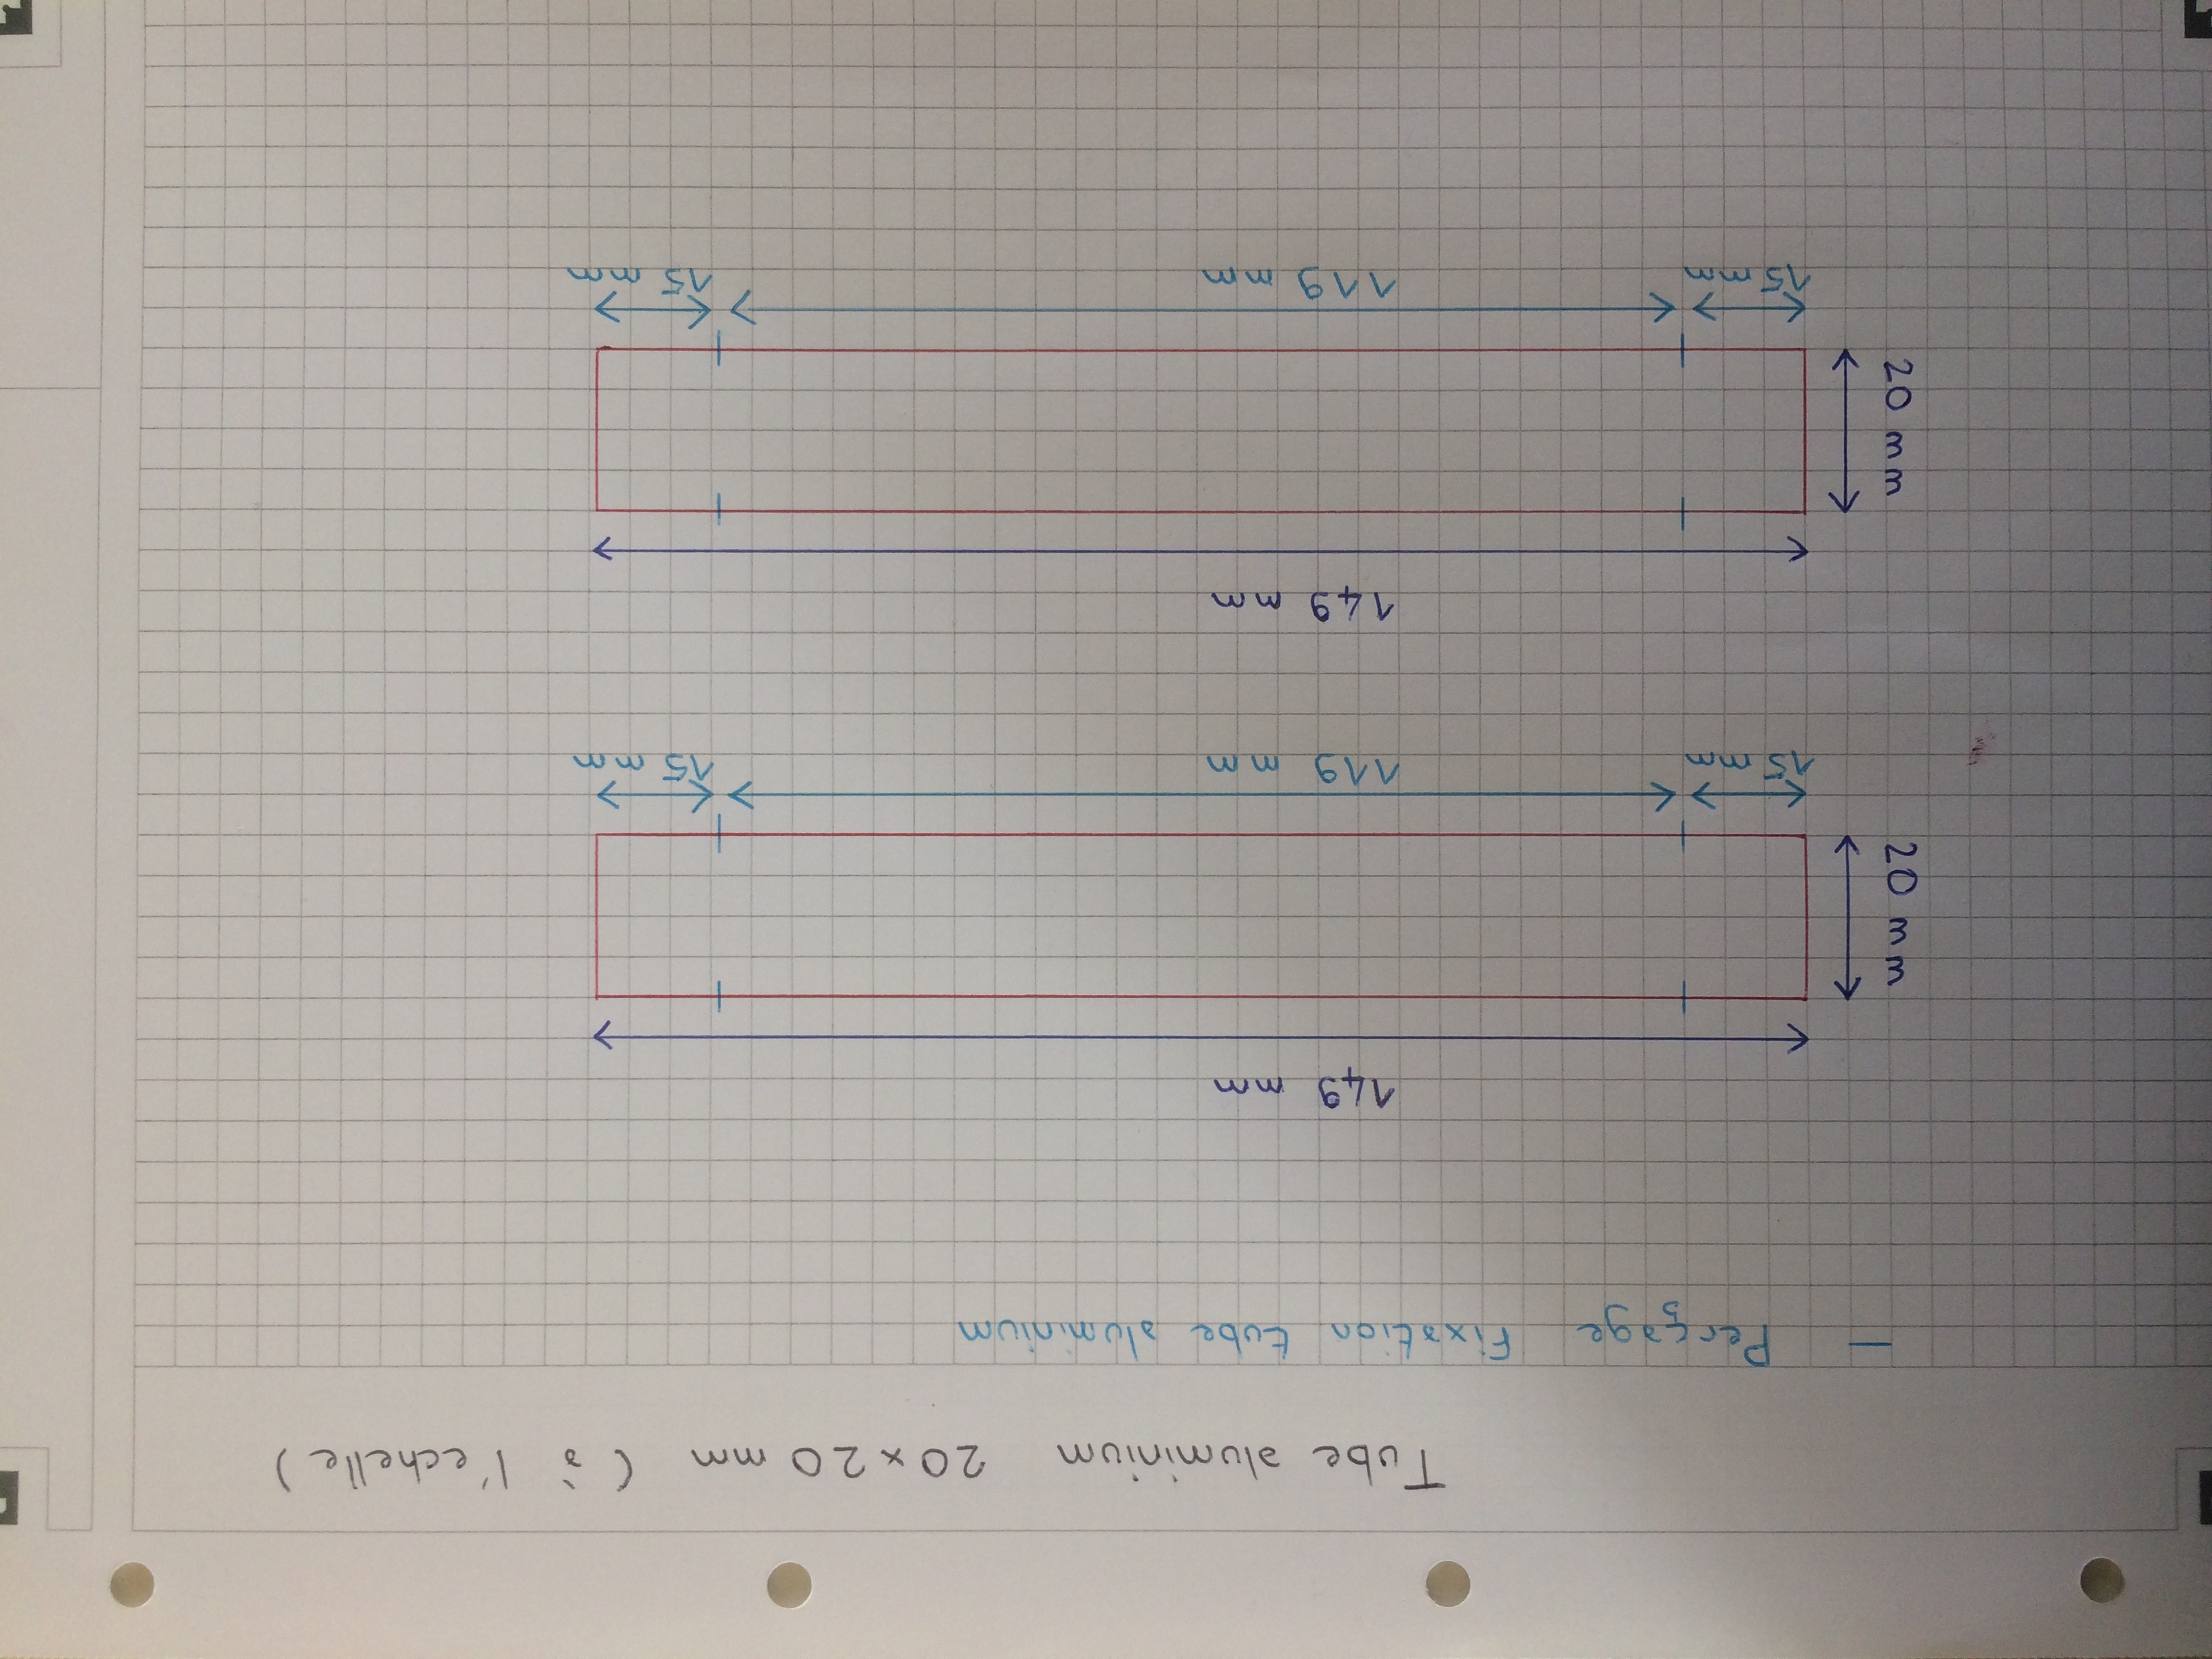 Tube aluminium 20x20 mm (à l'echelle)
— Perçage fixation tube aluminium
149 mm
20 mm
15 mm 119 mm 15 mm
149 mm
20 mm
15 mm 119 mm 15 mm